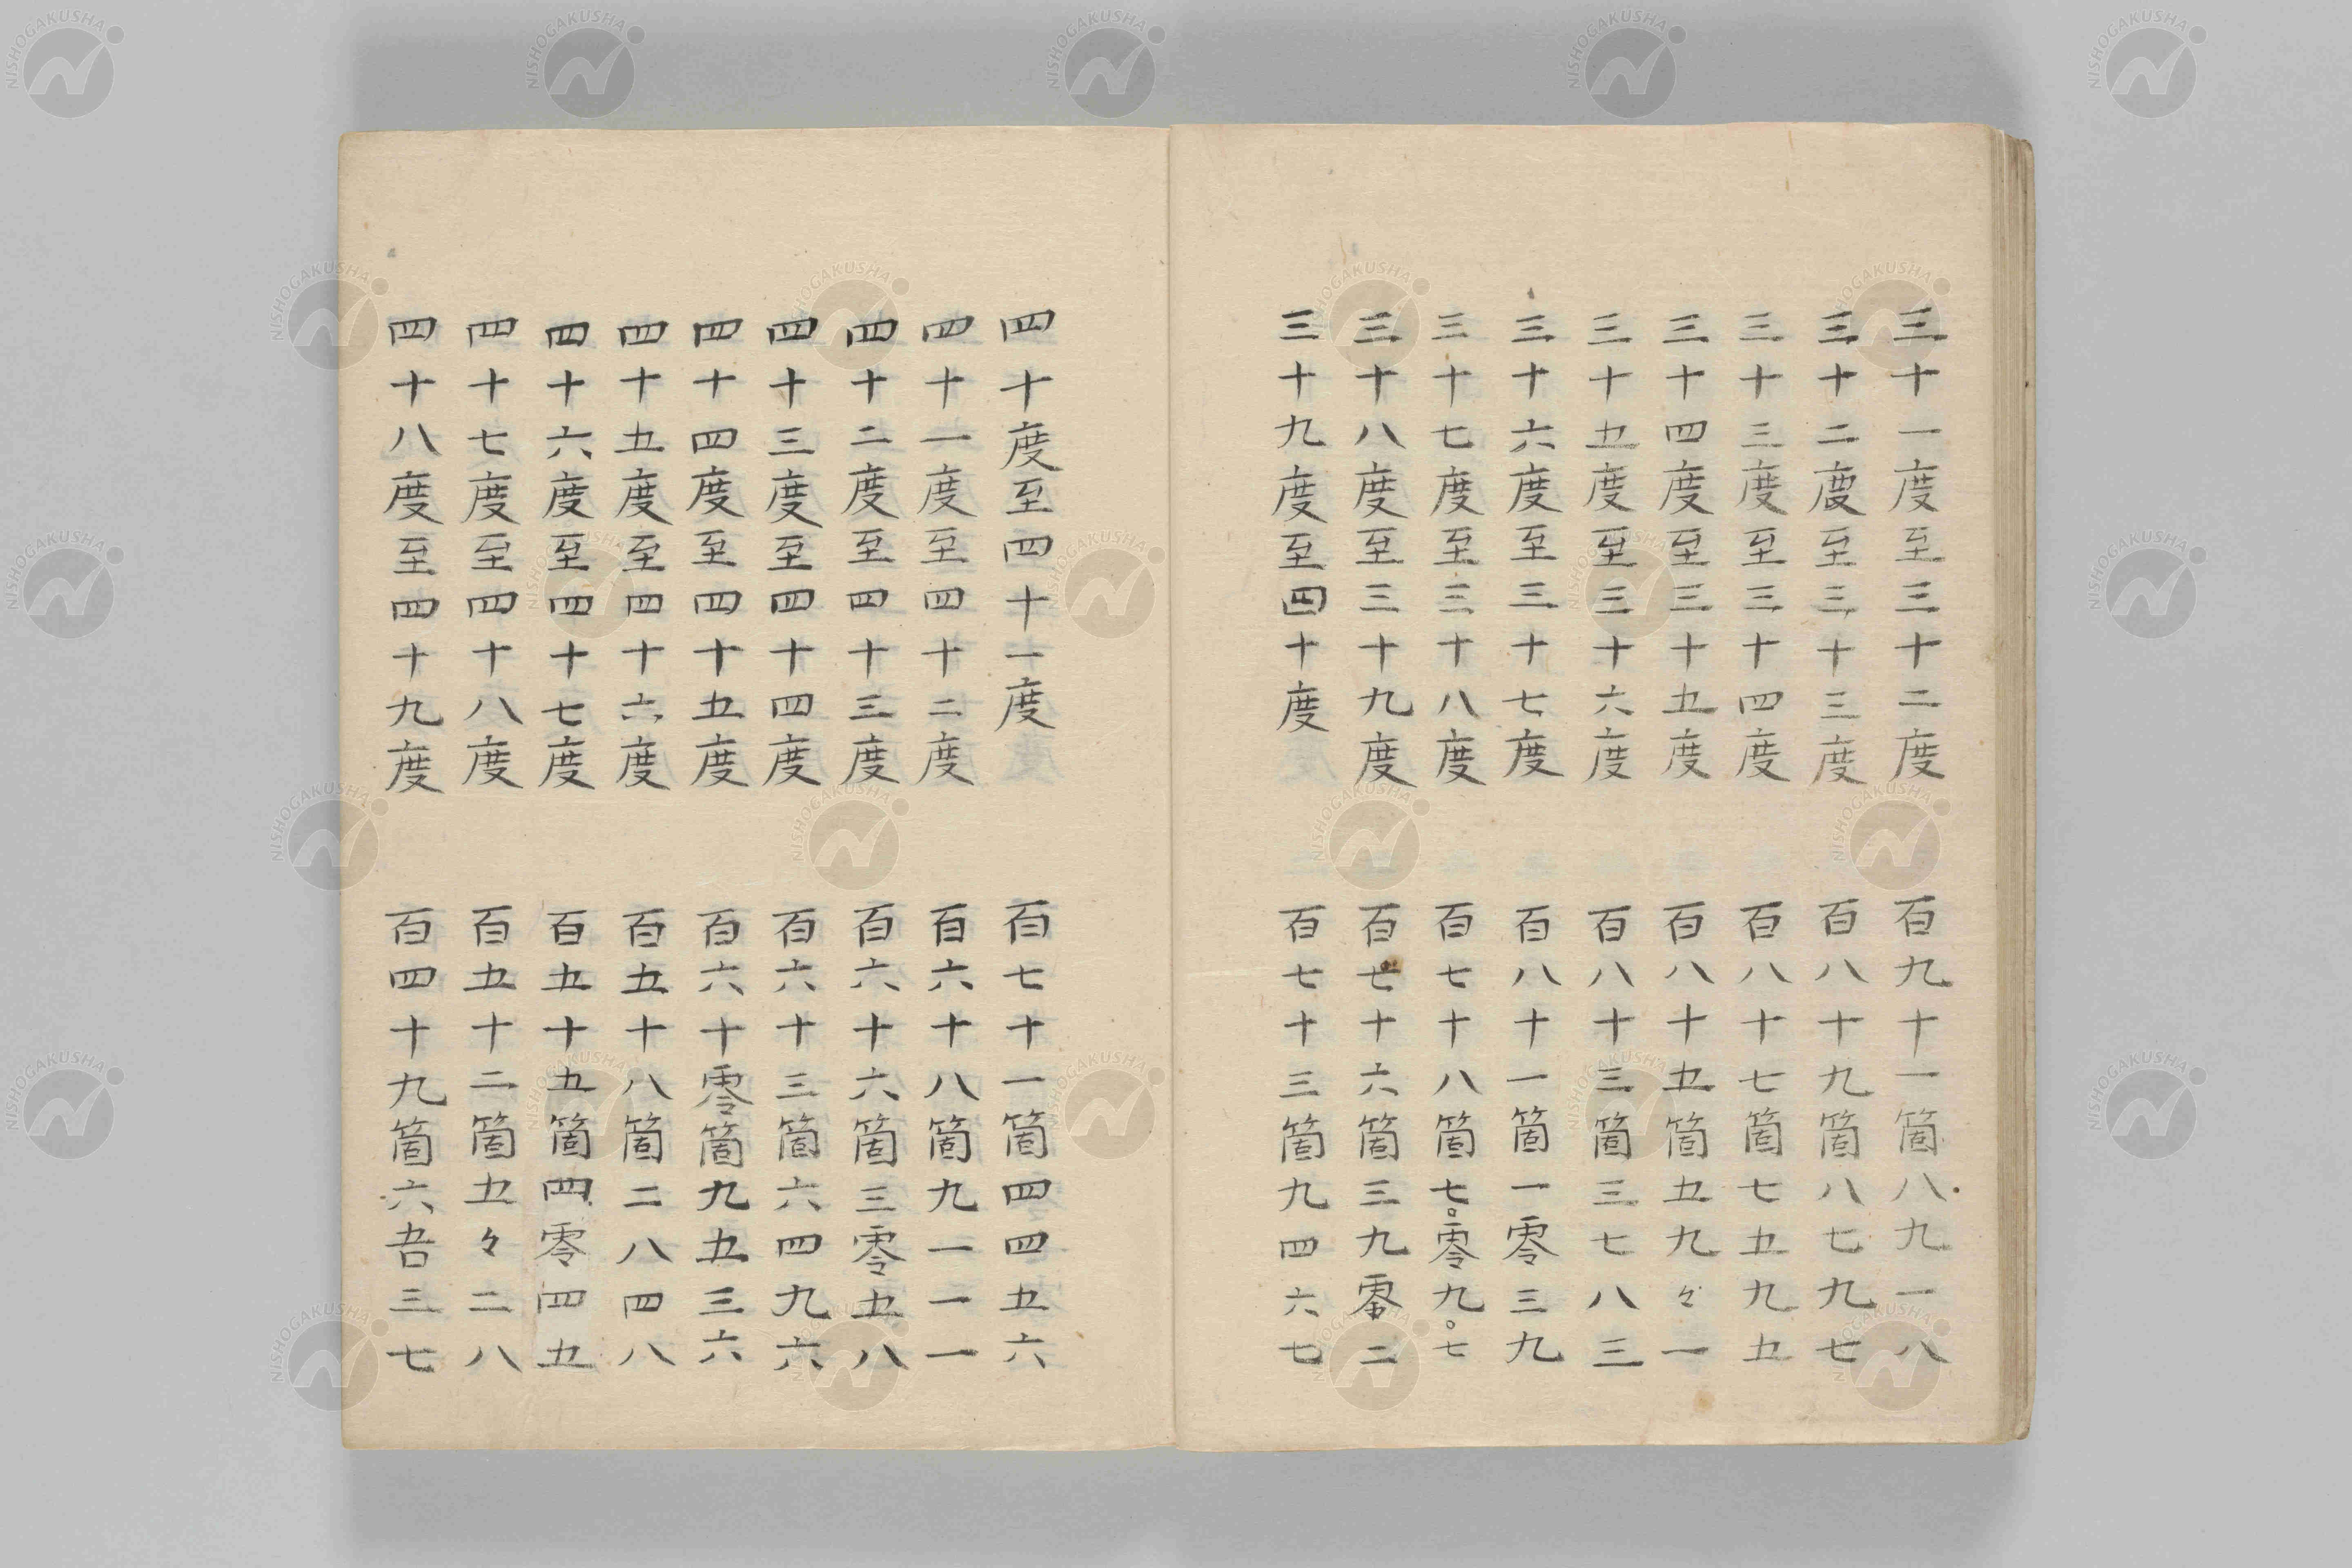 三十一度至三十二度 百九十一箇八九一八
三十二度至三十三度 百八十九箇八七九七
三十三度至三十四度 百八十七箇七五九五
三十四度至三十五度 百八十五箇五九々一
三十五度至三十六度 百八十三箇三七八三
三十六度至三十七度 百八十一箇一零三九
三十七度至三十八度 百七十八箇七零九七
三十八度至三十九度 百七十六箇三九零二
三十九度至四十度 百七十三箇九四六七
四十度至四十一度 百七十一箇四四五六
四十一度至四十二度 百六十八箇九一一一
四十二度至四十三度 百六十六箇三零五八
四十三度至四十四度 百六十三箇六四九六
四十四度至四十五度 百六十零箇九五三六
四十五度至四十六度 百五十八箇二八四八
四十六度至四十七度 百五十五箇四零四五
四十七度至四十八度 百五十二箇五々二八
四十八度至四十九度 百四十九箇六吾三七
NISHOGAKUSHA